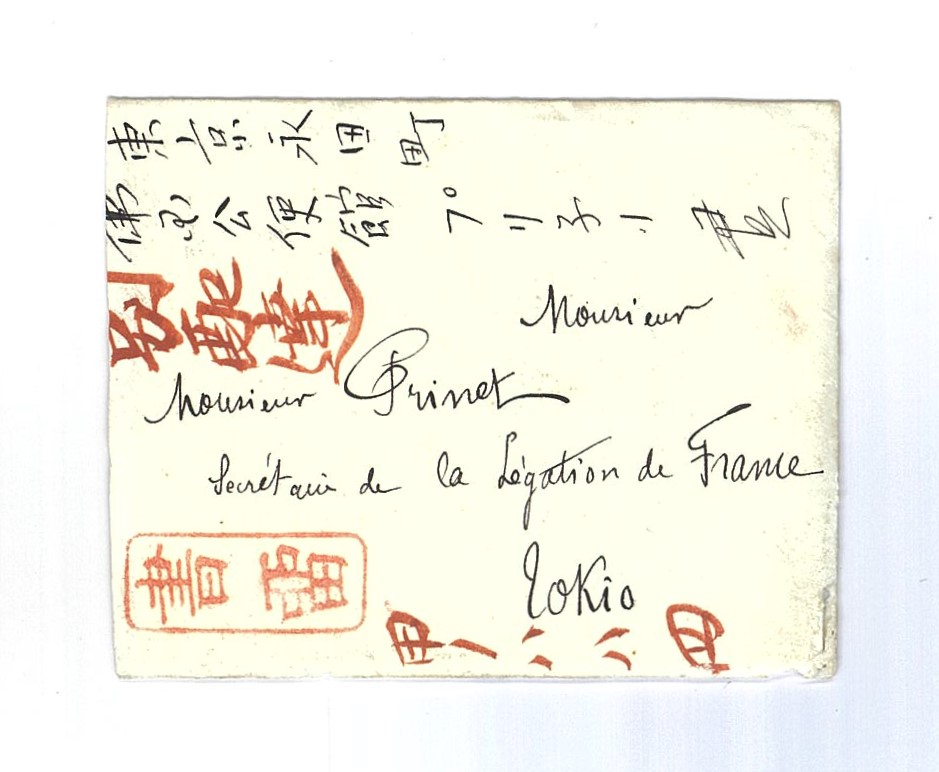 東京永田町
佛国公使館 プリ子ー
別配達
Monsieur
Monsieur Prinet
Secrétaire de la Légation de France
Tokio
書留
甲一八八四